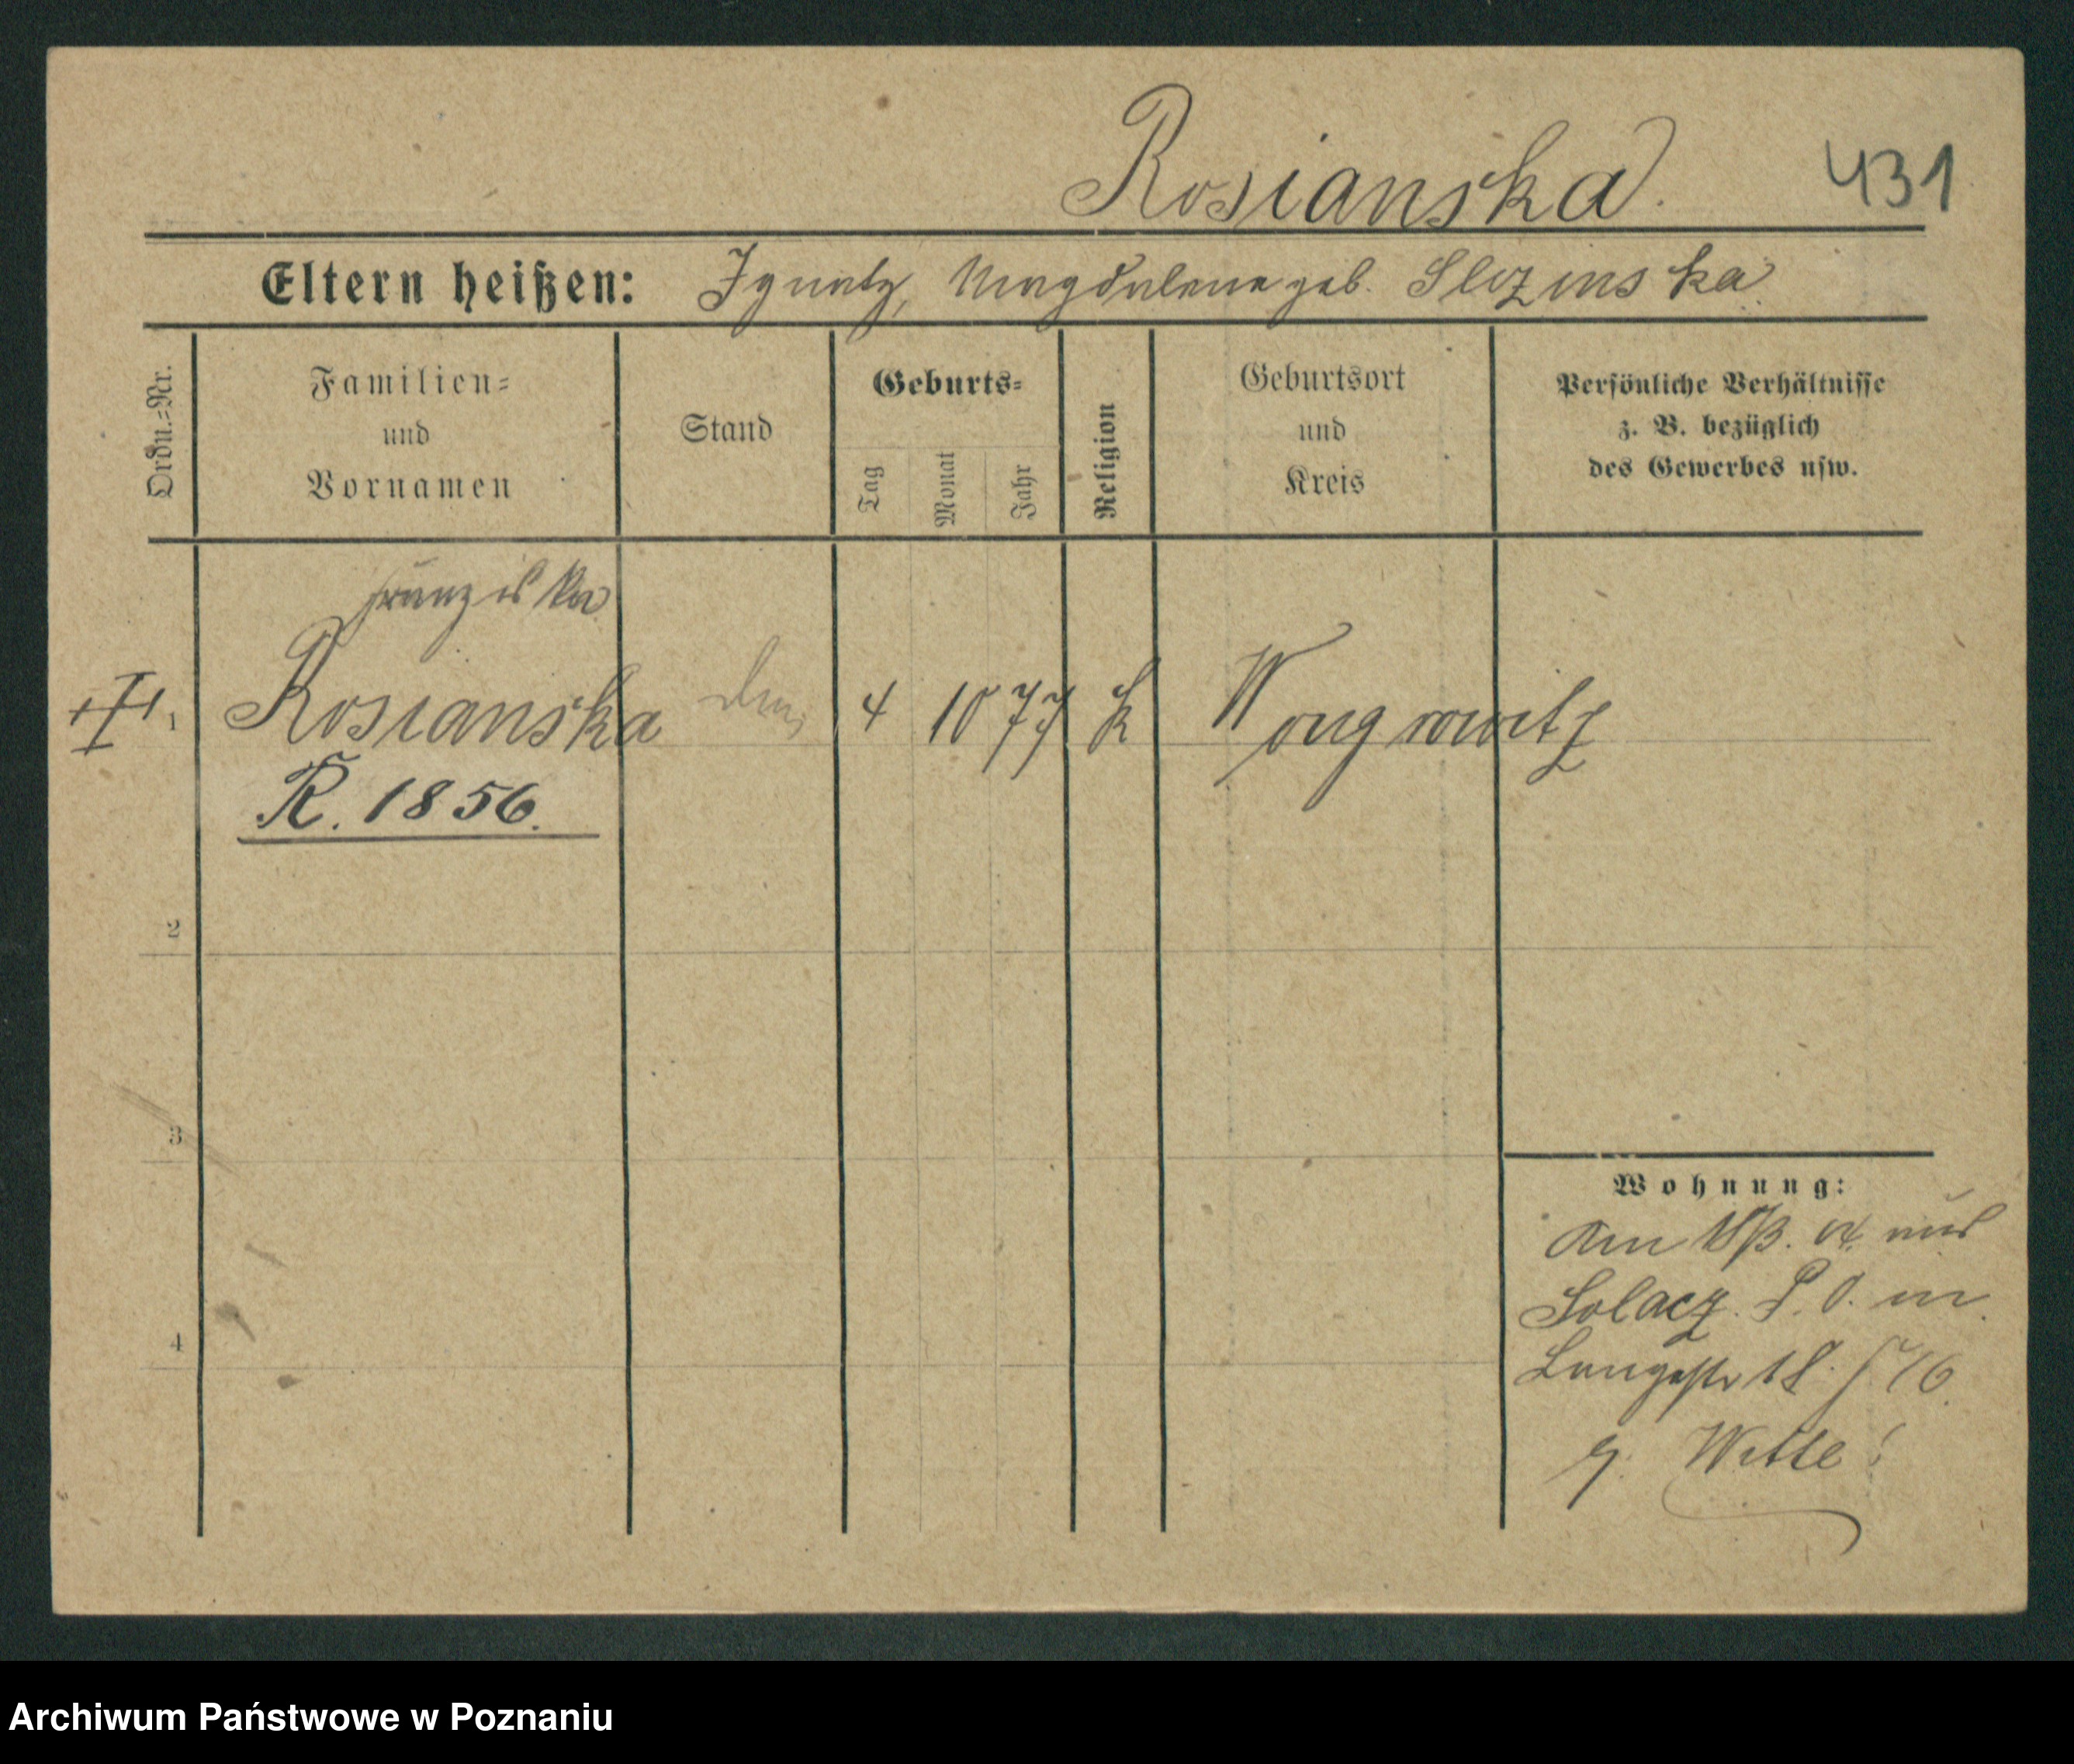 Rosianska. 431
Eltern heißen: Ignatz, Magdalena geb. Slozinska
Ordn.=Nr.
Familien=
und
Vornamen
Stand
Geburts=
Tag
Monat
Jahr
Religion
Geburtsort
und
Kreis
Persönliche Verhältnisse
z. B. bezüglich
des Gewerbes usw.
Franziska
1 Rosianska 4 10 77 k Wongrowitz
R. 1856.
2
3
4
Wohnung:
Am aus
Solacz. P. O. in
Langestr 16
Witte
Archiwum Państwowe w Poznaniu